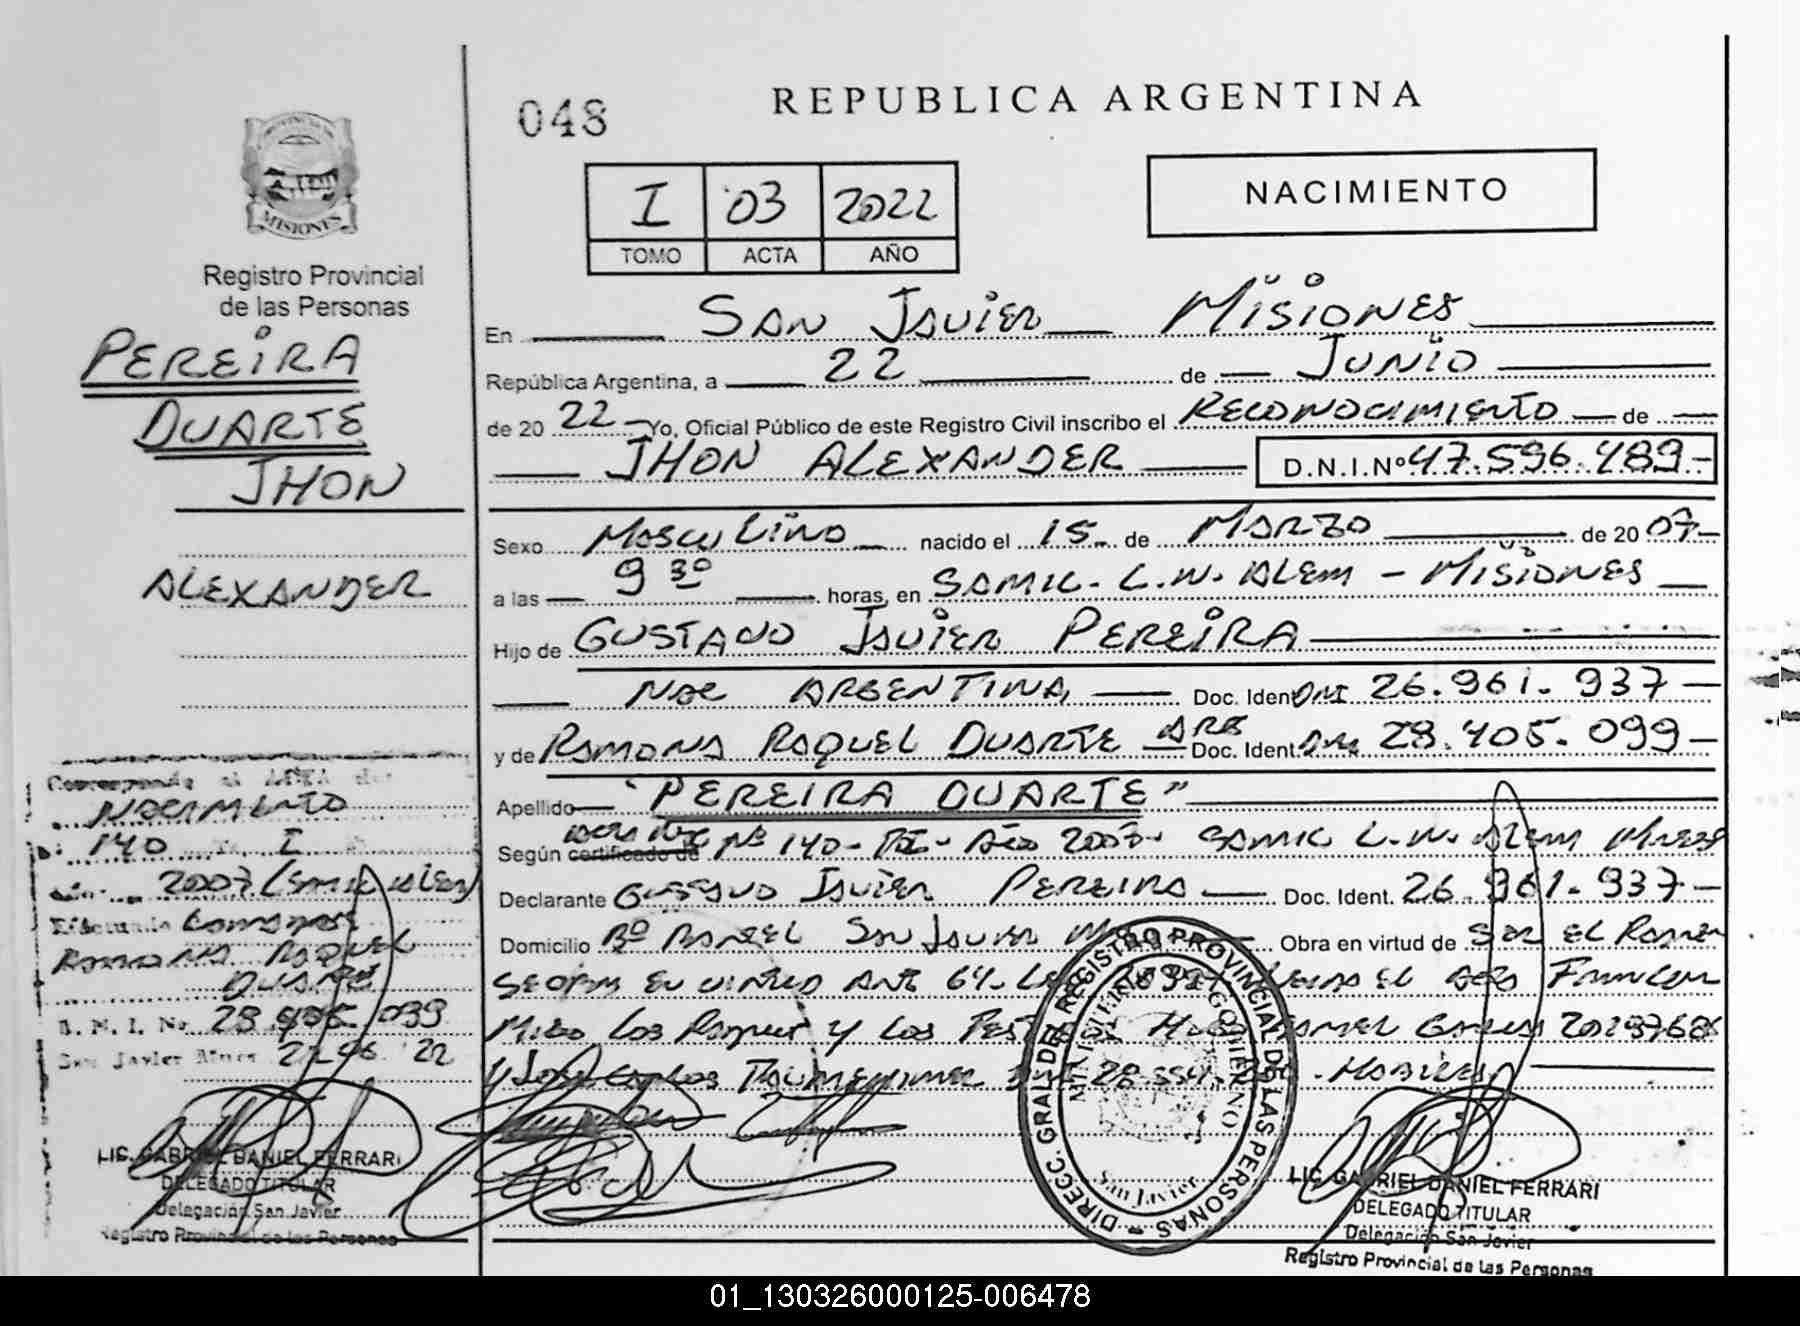 048
REPUBLICA ARGENTINA
PROVINCIA DE
MISIONES
Registro Provincial
de las Personas
I 03 2022
TOMO ACTA AÑO
NACIMIENTO
PEREIRA
DUARTE
JHON
ALEXANDER
En SAN JAVIER MISIONES
República Argentina, a 22 de JUNIO
de 20 22 Yo, Oficial Público de este Registro Civil inscribo el RECONOCIMIENTO de
JHON ALEXANDER D.N.I.Nº 47.596.489-
Sexo MASCULINO nacido el 15 de MARZO de 20 07-
a las 9 30 horas, en SAMIC. L.N. ALEM - MISIONES
Hijo de GUSTAVO JAVIER PEREIRA
NAC ARGENTINA, Doc. Ident DNI 26.961.937-
y de RAMONA RAQUEL DUARTE ARG Doc. Ident. DNI 28.405.099-
Apellido "PEREIRA DUARTE"
Según certificado de Nº 140- TI- Año 2007- SAMIC L.N. ALEM
Declarante GUSTAVO JAVIER PEREIRA Doc. Ident. 26.961.937-
Domicilio Bº SAN JAVIER Obra en virtud de SER EL PADRE
Y LOS
Y CARLOS
Corresponde al ACTA de
NACIMIENTO
140 I
2007 (SAMIC ALEM)
RAMONA RAQUEL
DUARTE
D. N. I. Nº 28.405.099
San Javier Mnes 22 06 22
LIC. GABRIEL DANIEL FERRARI
DELEGADO TITULAR
Delegación San Javier
Registro Provincial de las Personas
DIRECC. GRAL. DEL REGISTRO PROVINCIAL DE LAS PERSONAS
MINISTERIO DE GOBIERNO
San Javier
LIC. GABRIEL DANIEL FERRARI
DELEGADO TITULAR
Delegación San Javier
Registro Provincial de las Personas
01_130326000125-006478